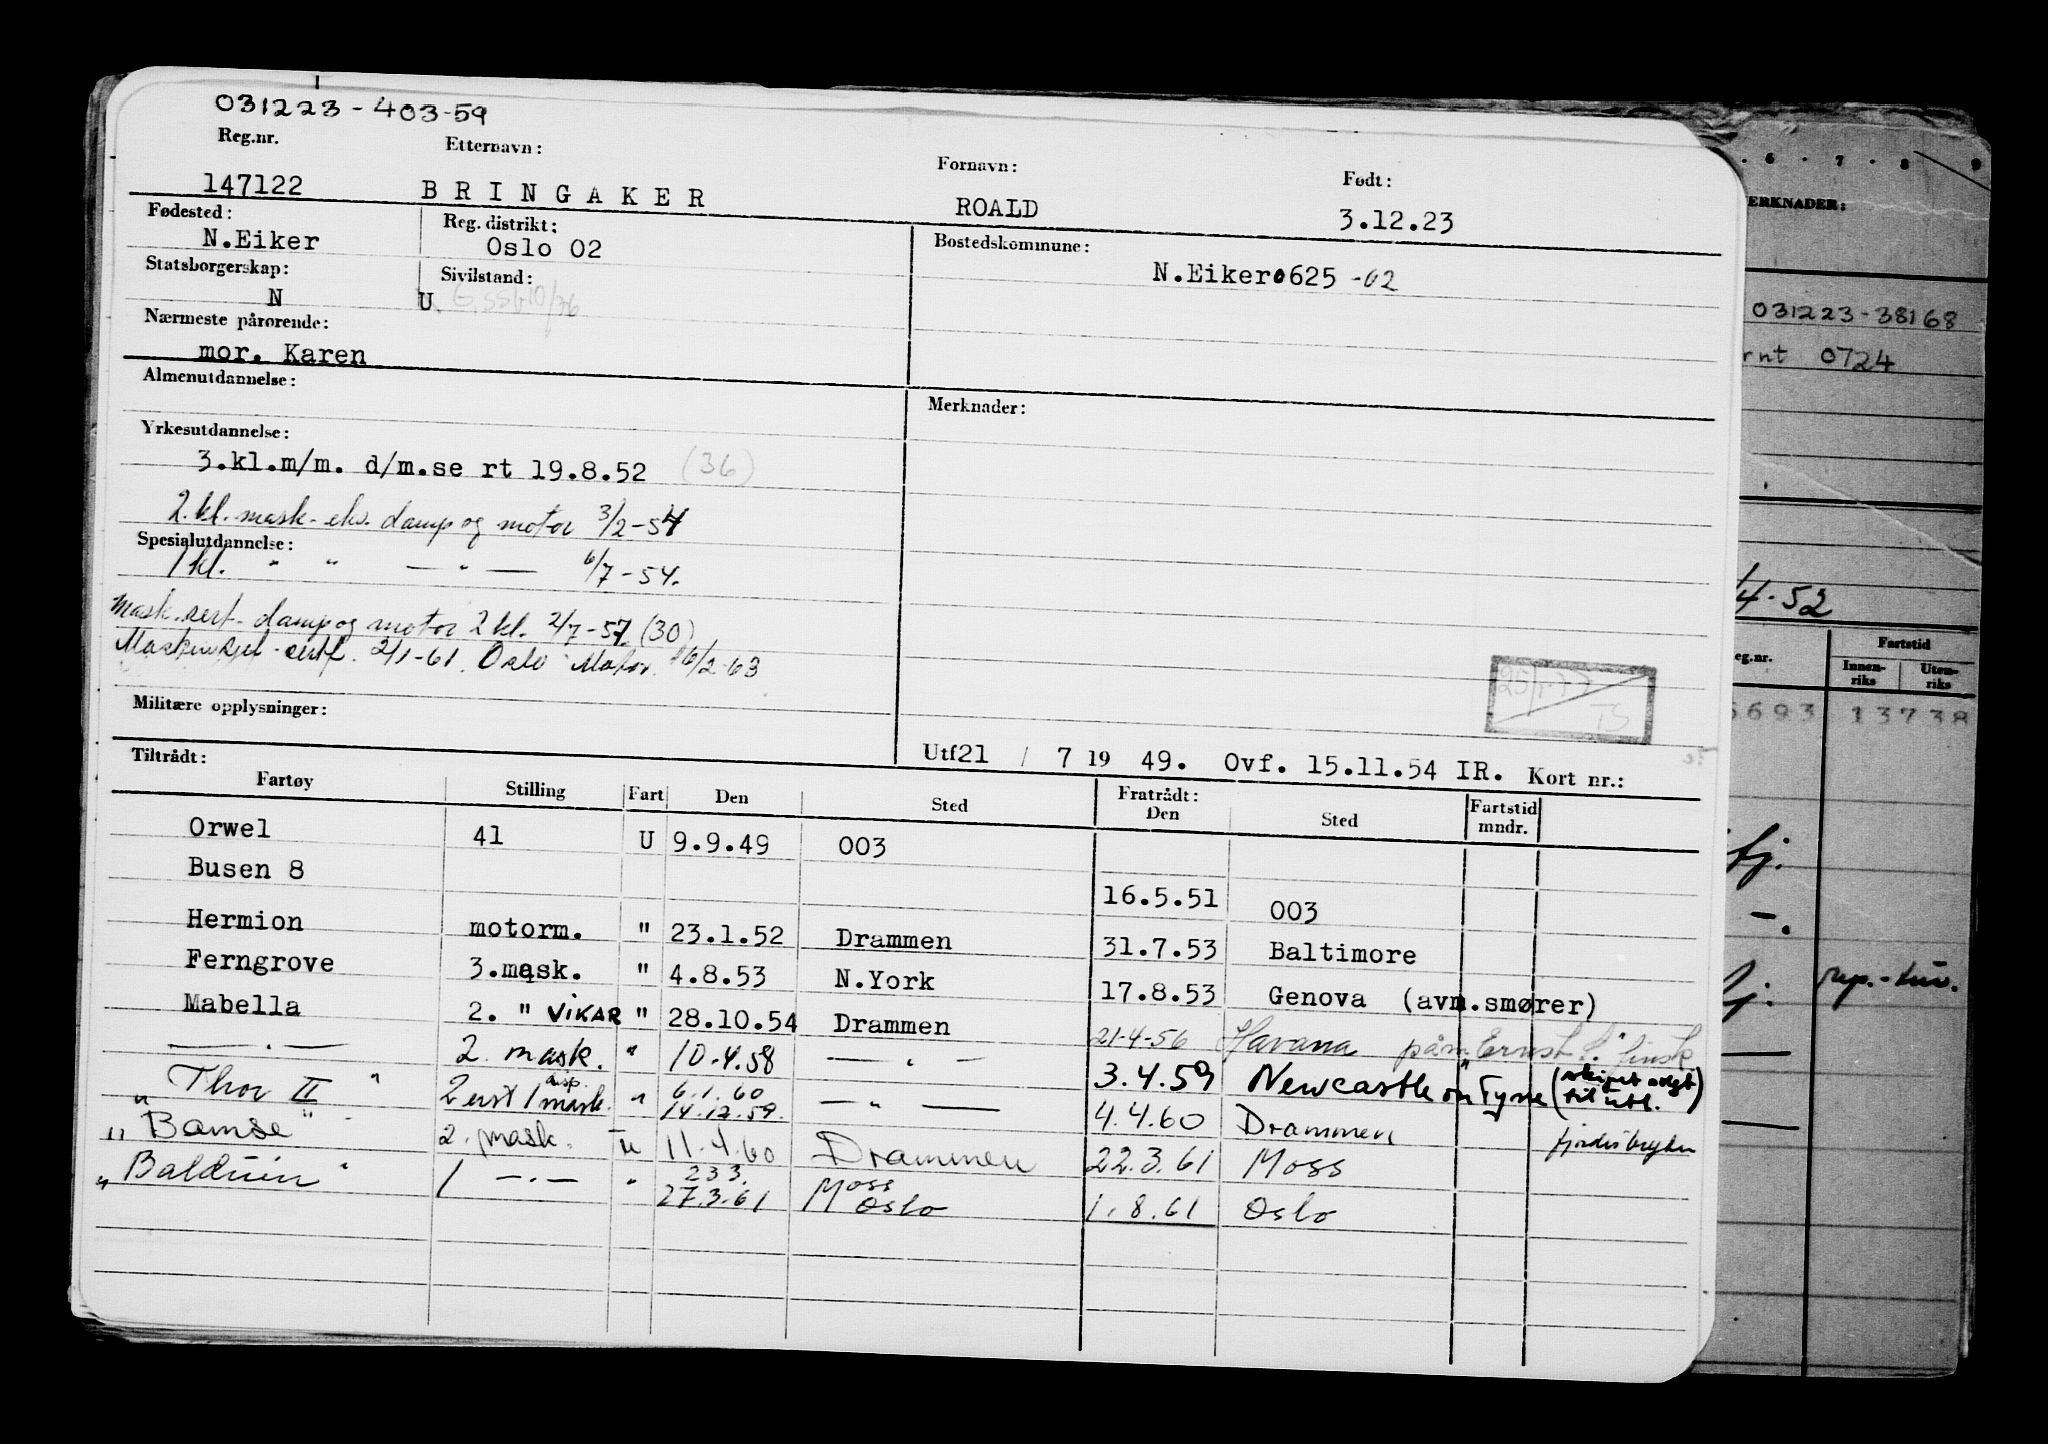 031223-403-59
Reg.nr. Etternavn: Fornavn: Født:
147122 BRINGAKER ROALD 3.12.23
Fødested: Reg. distrikt: Bostedskommune:
N.Eiker Oslo 02 N.Eiker 0625 -02
Statsborgerskap: Sivilstand:
N U
Nærmeste pårørende:
mor. Karen
Almenutdannelse: Merknader:
Yrkesutdannelse:
3.kl.m/m. d/m.se rt 19.8.52 (36)
2.kl. mask. eks. damp og motor 3/2-54
Spesialutdannelse:
1 kl. " " — " — 6/7-54.
Mask.sert. damp og motor 2 kl. 2/7-57 (30)
2/1-61. Oslo Motor. 16/2-63
Militære opplysninger:
Utf 21 / 7 19 49. Ovf. 15.11.54 IR. Kort nr.:
Tiltrådt: Fratrådt:
Fartøy Stilling Fart Den Sted Den Sted Fartstid mndr.
Orwel 41 U 9.9.49 003
Busen 8 16.5.51 003
Hermion motorm. " 23.1.52 Drammen 31.7.53 Baltimore
Ferngrove 3.mask. " 4.8.53 N.York 17.8.53 Genova (avm.smører)
Mabella 2. " VIKAR " 28.10.54 Drammen 21-4-56 Havana påm "Ernst S." finsk
— " — 2. mask. " 10.4.58 — " — 3.4.59 Newcastle on Tyne (skipet solgt til utl.)
"Thor II" 2 erst 1 mask. disp. " 6.1.60 14.12.59. — " — 4.4.60 Drammen
"Bamse" 2. mask. U 11.4.60 Drammen 22.3.61 Moss
"Balduin" 1 — " — " 233. 27.3.61 Moss Oslo 1.8.61 Oslo
6 · 7 · 8 9
ERKNADER:
031223-38168
rnt 0724
/4-52
eg.nr. Fartstid
Innenriks Utenriks
6693 13738
fj.